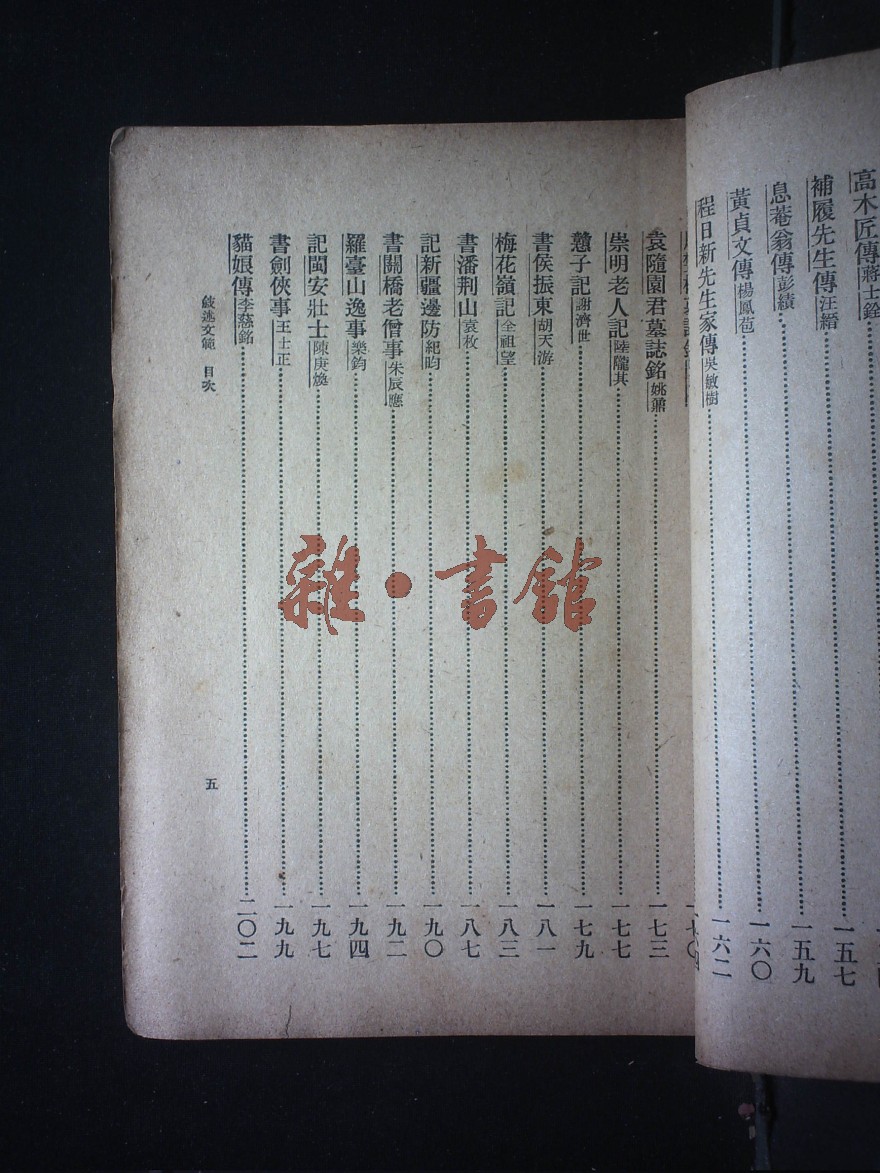 高木匠傳 蔣士銓
補履先生傳 汪縉 一五七
息菴翁傳 彭績 一五九
黃貞文傳 楊鳳苞 一六〇
程日新先生家傳 吳敏樹 一六二
袁隨園君墓誌銘 姚鼐 一七三
崇明老人記 陸隴其 一七七
戇子記 謝濟世 一七九
書侯振東 胡天游 一八一
梅花嶺記 全祖望 一八三
書潘荆山 袁枚 一八七
記新疆邊防 紀昀 一九〇
書關橋老僧事 朱辰應 一九二
羅臺山逸事 樂鈞 一九四
記閩安壯士 陳庚煥 一九七
書劍俠事 王士正 一九九
貓娘傳 李慈銘 二〇二
敍述文範 目次 五
雜·書館